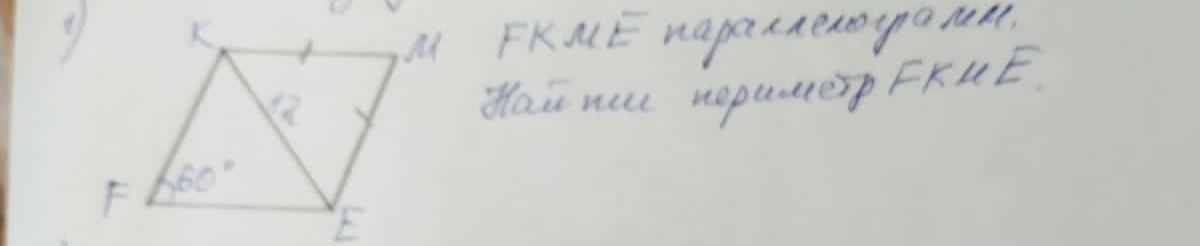 1)
K
M
FKME параллелограмм.
12
Найти периметр FKME.
F
60°
E